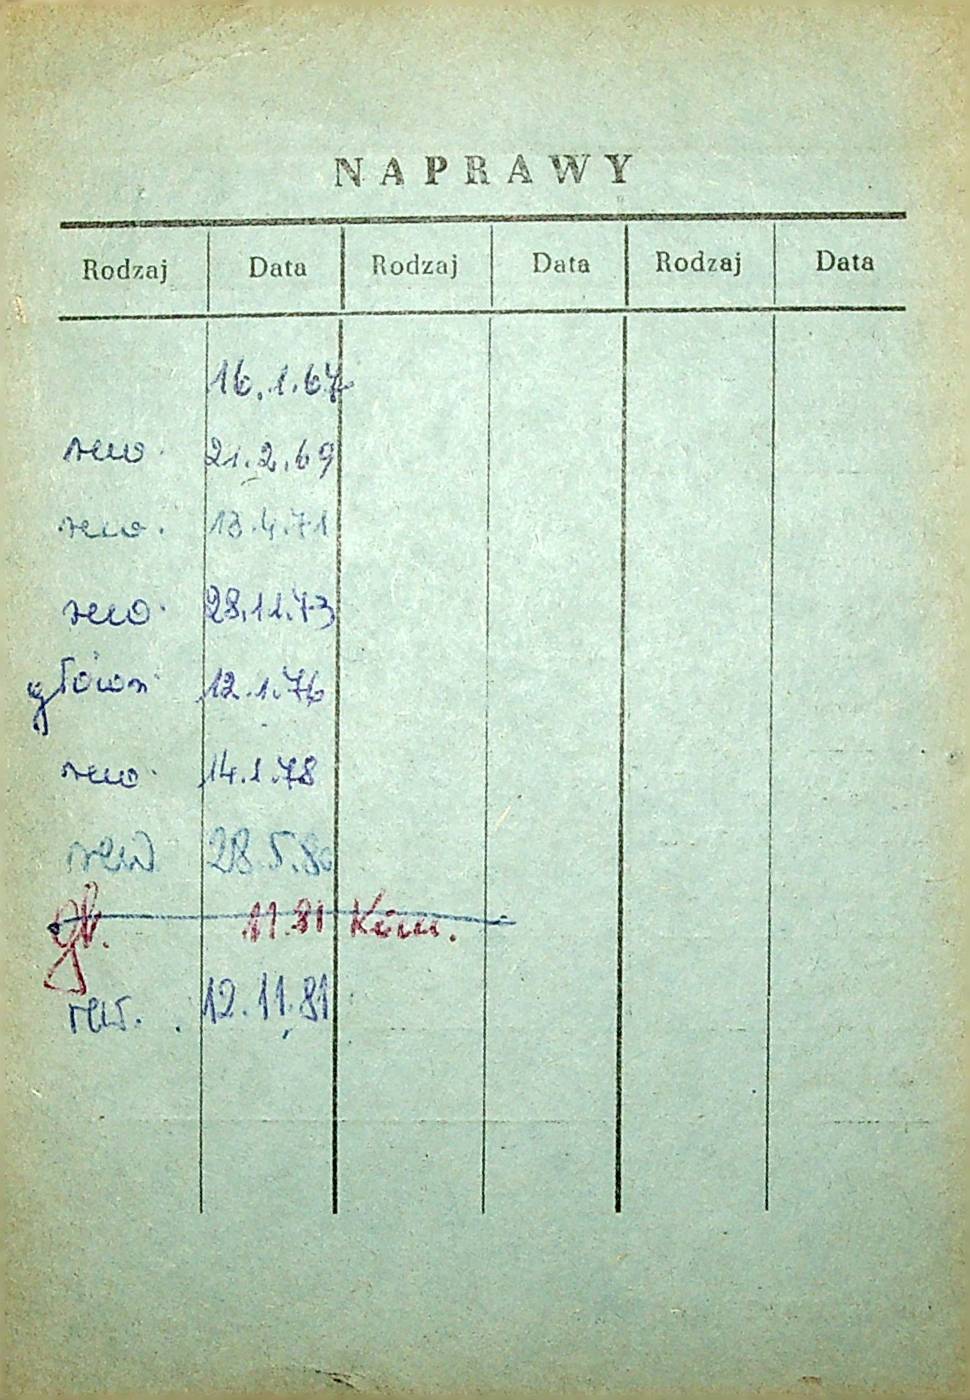 NAPRAWY
Rodzaj Data Rodzaj Data Rodzaj Data
16.1.67
rew. 21.2.69
rew. 13.4.71
rew. 28.11.73
główn. 12.1.76
rew. 14.1.78
rew 28.5.80
gł. 11.81
rew. 12.11.81